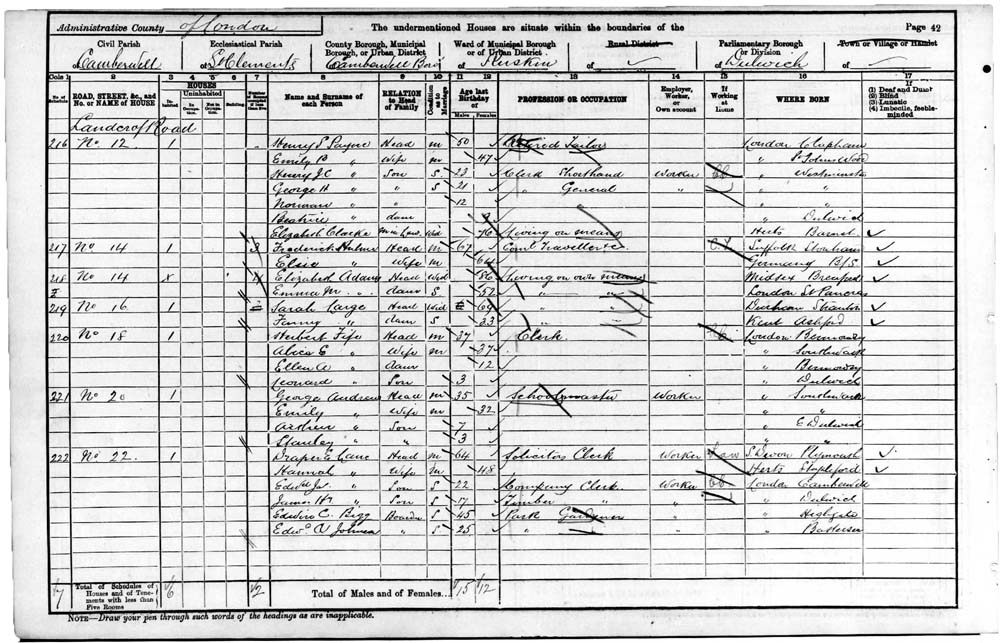 Administrative County of London The undermentioned Houses are situate within the boundaries of the Page 42
Civil Parish Ecclesiastical Parish County Borough, Municipal Borough, or Urban District Ward of Municipal Borough or of Urban District Rural District Parliamentary Borough or Division Town or Village or Hamlet
of Camberwell of St Clements of Camberwell Boro of Ruskin of of Dulwich of
Cols. 1 2 3 4 5 6 7 8 9 10 11 12 13 14 15 16 17
No. of Schedule ROAD, STREET, &c., and No. or NAME of HOUSE HOUSES Inhabited Uninhabited In Occupation Not in Occupation Building Name and Surname of each Person RELATION to Head of Family Condition as to Marriage Age last Birthday of Males Females PROFESSION OR OCCUPATION Employer, Worker, or Own account If Working at Home WHERE BORN (1) Deaf and Dumb (2) Blind (3) Lunatic (4) Imbecile, feeble-minded
Landcroft Road
216 No. 12 1 Henry S Payne Head M 50 Retired Tailor London Clapham
Emily B " Wife M 47 " St Johns Wood
Henry J C " Son S 23 Clerk Shorthand Worker " Westminster
George H " " S 21 " General " " "
Norman " " 12 " "
Beatrice " daur " Dulwich
Elizabeth Clarke Wid 76 Living on means Herts Barnet
217 No 14 1 3 Frederick Hulme Head M 67 Coml Traveller Suffolk Stonham
Elsie " Wife M 64 Germany B.S.
218 No 14 x Elizabeth Adams Head Wid 86 Living on own means Midsex Brentford
Emma M " daur S 52 " " London St Pancras
219 No 16 1 Sarah Large Head Wid 69 " " Durham Stranton
Fanny " daur S 33 " Kent Ashford
220 No 18 1 Herbert Fife Head M 37 Clerk London Bermondsey
Alice E " Wife M 37 " Southwark
Ellen A " daur 12 " Bermondsey
Leonard " Son 3 " Dulwich
221 No 20 1 George Andrews Head M 35 Schoolmaster Worker " Southwark
Emily " Wife M 32 " "
Arthur " Son 7 " E Dulwich
Stanley " " 3 " "
222 No. 22 1 Draper E Lane Head M 64 Solicitors Clerk Worker Law S Devon Plymouth
Hannah " Wife M 48 Herts Stapleford
Edwd Jn " Son S 22 Company Clerk Worker London Camberwell
James Hy " Son S 17 Timber " " " Dulwich
Edwin C. Bigg Boarder S 45 Park Gardener " " Highgate
Edwd V Johnson " S 25 " " " " Battersea
7 Total of Schedules of Houses and of Tenements with less than Five Rooms 6 2 Total of Males and of Females... 15 12
NOTE—Draw your pen through such words of the headings as are inapplicable.